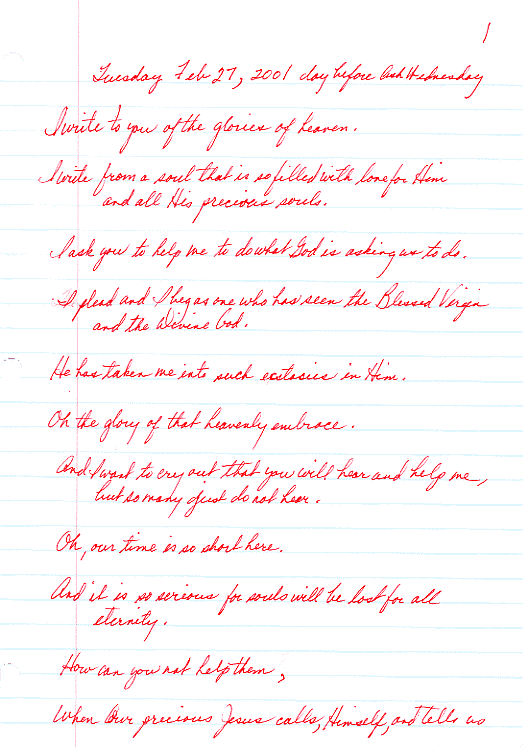 1
Tuesday Feb 27, 2001 day before Ash Wednesday
I write to you of the glories of heaven.
I write from a soul that is so filled with love for Him
and all His precious souls.
I ask you to help me to do what God is asking us to do.
I plead and I beg as one who has seen the Blessed Virgin
and the Divine God.
He has taken me into such ecstasies in Him.
Oh the glory of that heavenly embrace.
And I want to cry out that you will hear and help me,
but so many just do not hear.
Oh, our time is so short here.
And it is so serious for souls will be lost for all
eternity.
How can you not help them,
When Our precious Jesus calls, Himself, and tells us